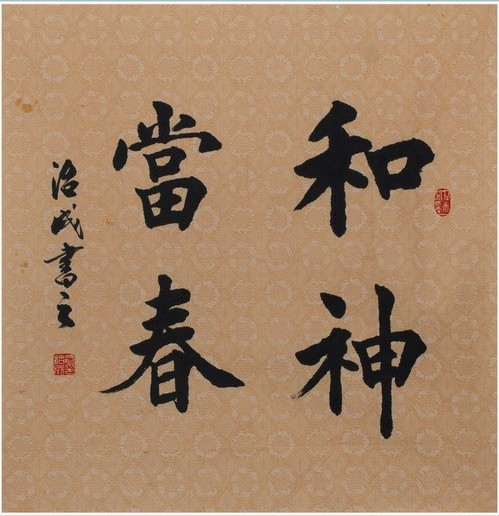 和神
當春
治民書之